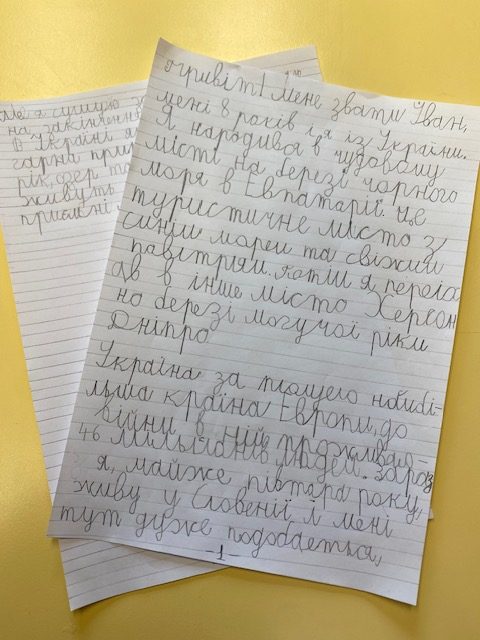 Привіт! Мене звати Іван,
мені 8 років і я із України.
Я народився в чудовому
місті на березі чорного
моря в Евпаторії. Це
туристичне місто з
синім морем та свіжим
повітрям. Потім я переїх
ав в інше місто Херсон
на березі могучої ріки
Дніпро
Україна за площею найбі-
льша країна Европи, до
війни в ній проживало
46 мільйонів людей. Зараз
я, майже півтара року,
живу у Словенії і мені
тут дуже подобається,
-1-
Але я сумую
на закінчення
В Україні
гарна
рік, озер та
живуть